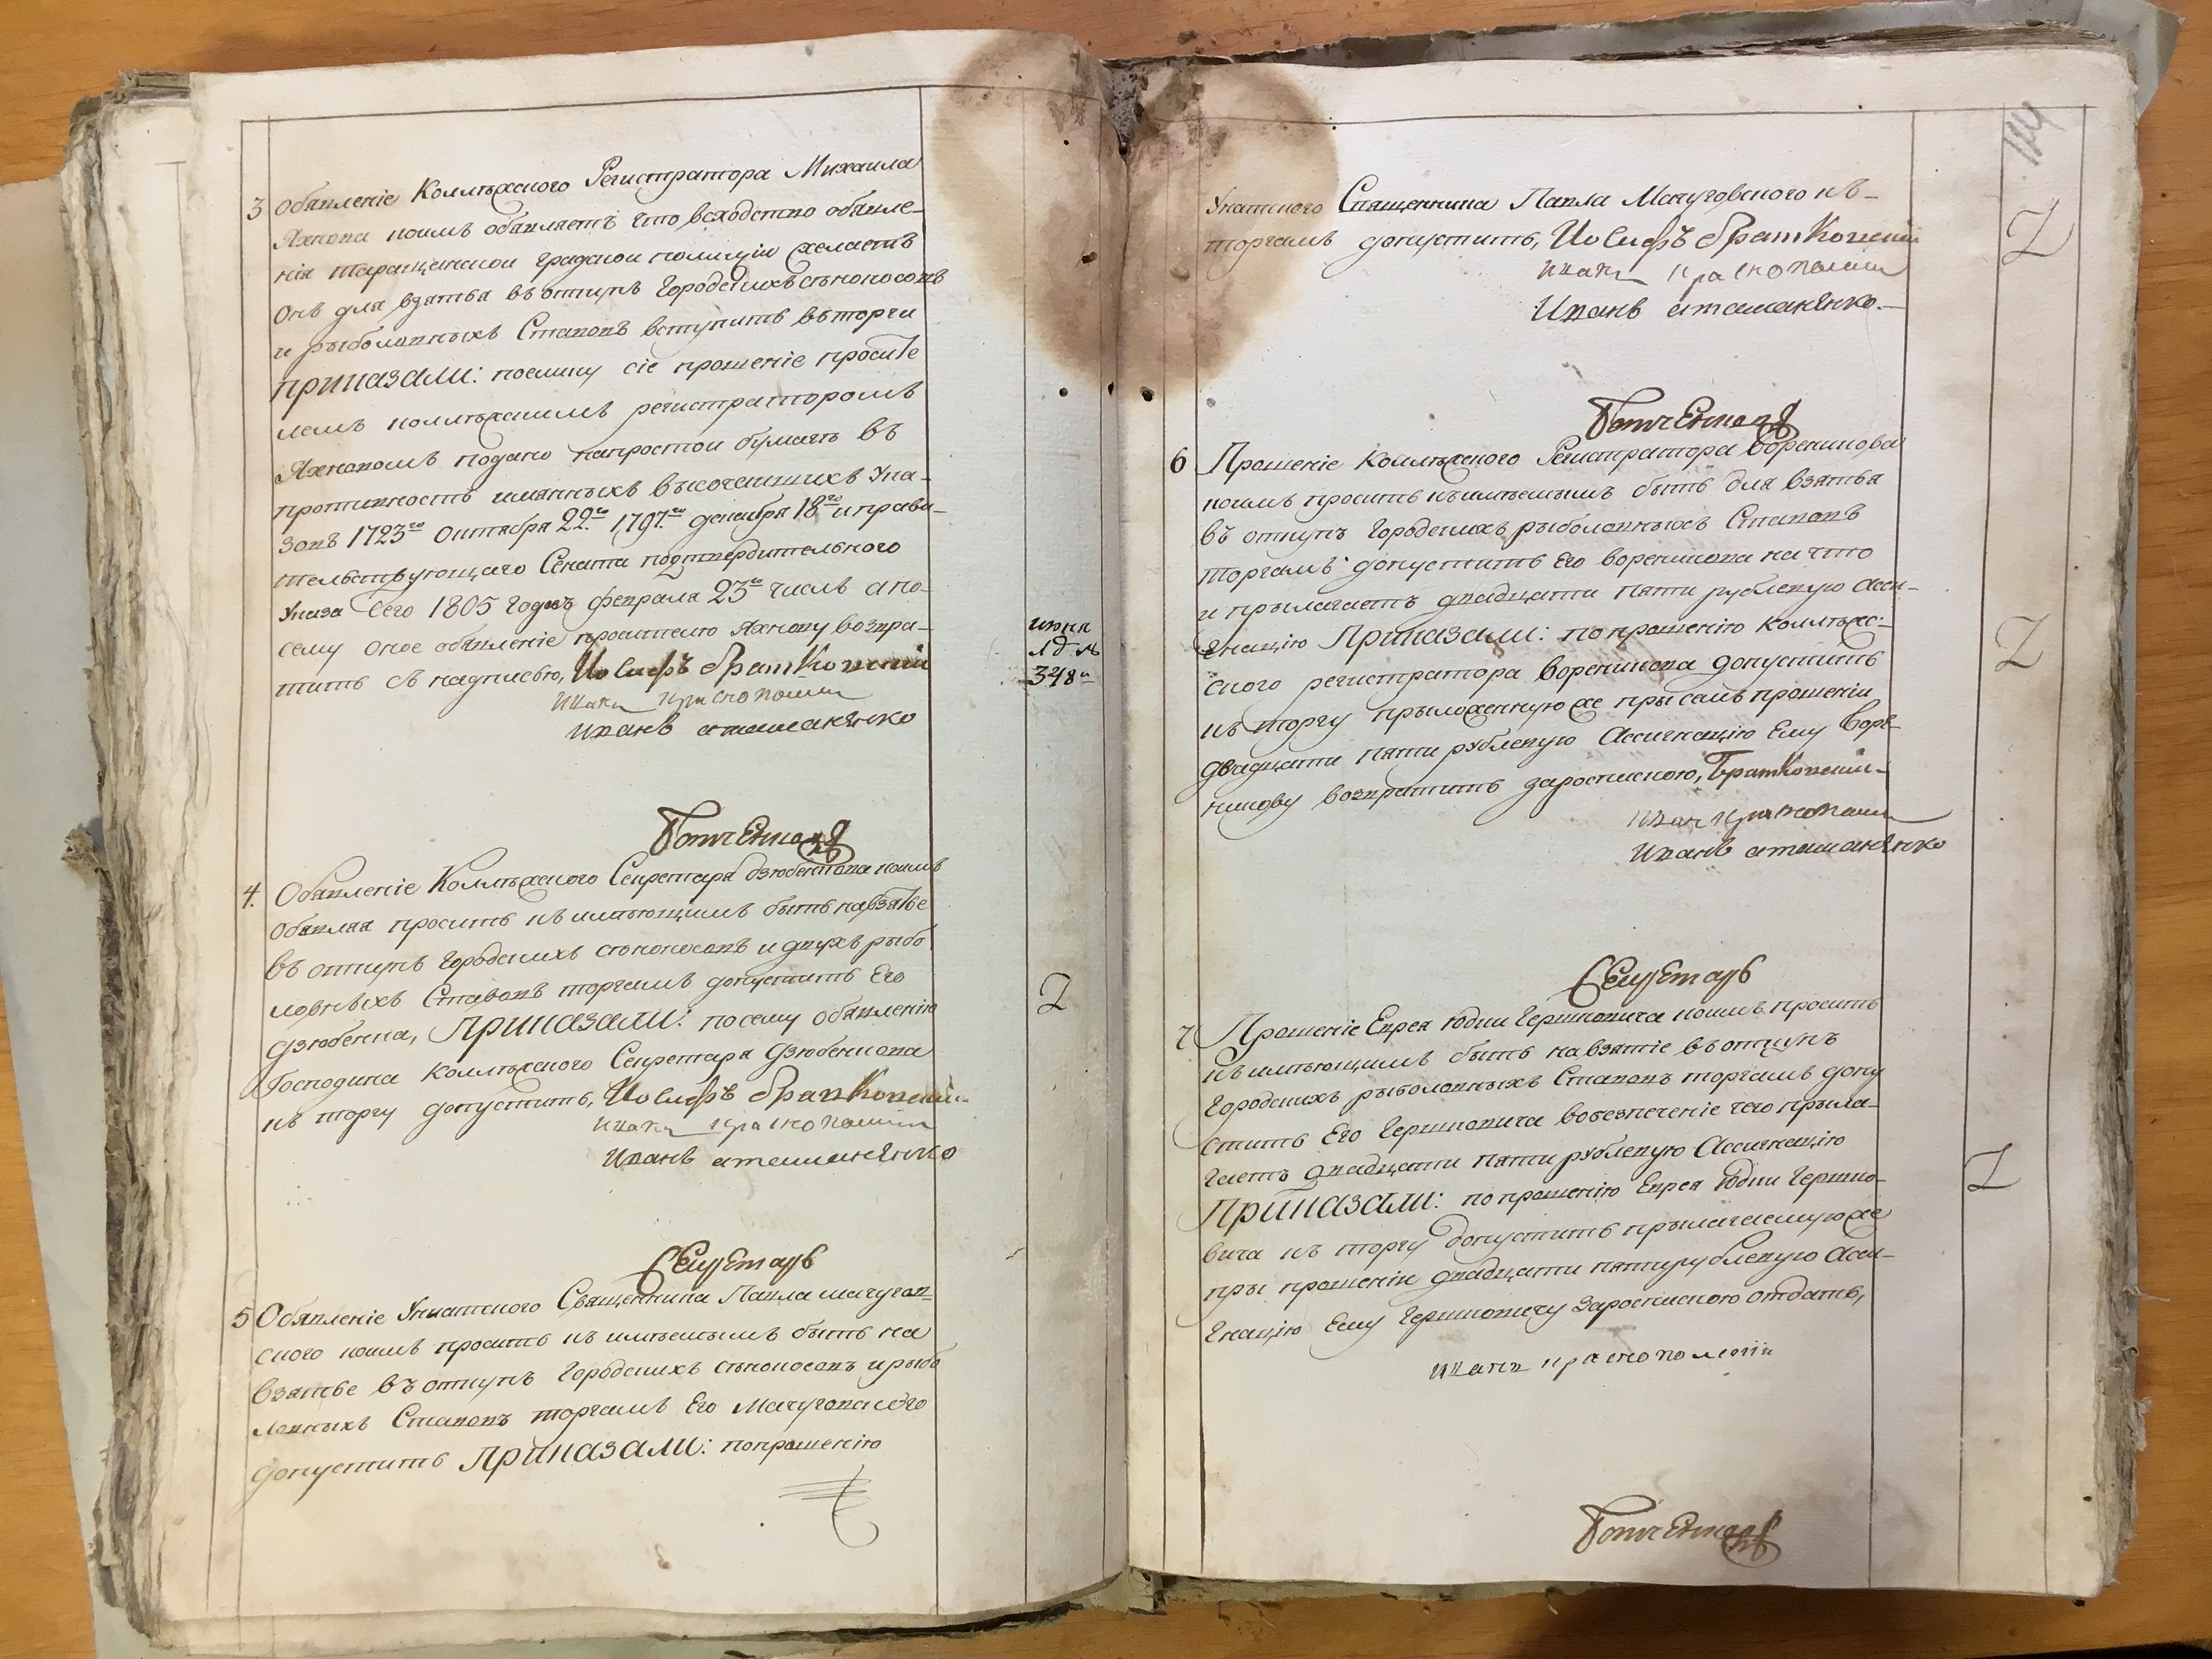 3 Обявленіе Коллѣжского Регистратора Михаила
Яхнова коимъ обявляетъ что всходство обявле-
нія таращанской градской полиціи желаетъ
онъ для взятья въ откупъ Городскихъ сѣнокосовъ
и рыболовныхъ Ставовъ вступить въ торги
приказали: поелику сіе прошеніе просите
лемъ коллѣжскимъ регистраторомъ
Яхновомъ подано на простой бумагѣ въ
противность имянныхъ высочайшихъ Ука-
зовъ 1723го Октября 22го 1797го декабря 18го и прави-
тельствующаго Сената подтвердительного
Указа Сего 1805 годъ февраля 23го числъ а по-
сему оное обявленіе просителю Яхнову возвра-
тить съ надписью, Иосифъ Братковскій
Иванъ Краснопольскій
Иванъ атаманенко
июня
1 д. №
348и
4. Обявленіе Коллѣжского Секретаря дзюбенкова коимъ
обявляя проситъ къ имѣющимъ быть на взятье
въ откупъ Городскихъ сѣнокосовъ и двухъ рыбо
ловныхъ Ставовъ торгамъ допустить Его
дзюбенка, Приказали: по сему обявленію
Господина Коллѣжского Секретаря Дзюбенкова
къ торгу допустить, Иосифъ Братковскій
Иванъ Краснопольскій
Иванъ атаманенко
Секретарь
5 Обявленіе Униатского Священника Павла мачугов-
ского коимъ проситъ къ имѣемымъ быть на
взятье въ откупъ Городскихъ сѣнокосовъ и рыбо
ловныхъ Ставовъ торгамъ Его Мачуговского
допустить Приказали: по прошенію
114
Униатского Священника Павла Мачуговского къ-
торгамъ допустить, Иосифъ Братковскій
Иванъ Краснопольскій
Иванъ атаманенко.
6 Прошеніе Коллѣжского Регистратора Вореникова
коимъ проситъ къ имѣемымъ быть для взятья
въ откупъ Городскихъ рыболовныхъ Ставовъ
торгамъ допустить Его вореникова на что
и прылагаетъ двадцати пяти рублевую асси-
гнацію Приказали: по прошенію коллѣжс-
ского регистратора вореникова допустить
къ торгу прыложенную же при семъ прошеніи
двадцати пяти рублевую Ассигнацію Ему Воре-
никову возвратить зароспискою, Братковскій
Иванъ Краснопольскій
Иванъ атаманенко
Секретарь
7 Прошеніе Еврея Юдки Гершковича коимъ проситъ
къ имѣющимъ быть на взятіе въ откупъ
Городскихъ рыболовныхъ Ставовъ торгамъ допу
стить Его Гершковича вобезпеченіе чего прыла-
гаетъ двадцати пяти рублевую Ассигнацію
Приказали: по прошенію Еврея Юдки Гершко-
вича къ торгу допустить прылагаемую же
при прошеніи двадцати пятирублевую асси-
гнацію Ему Гершковичу зароспискою отдать,
Иванъ Краснопольскій